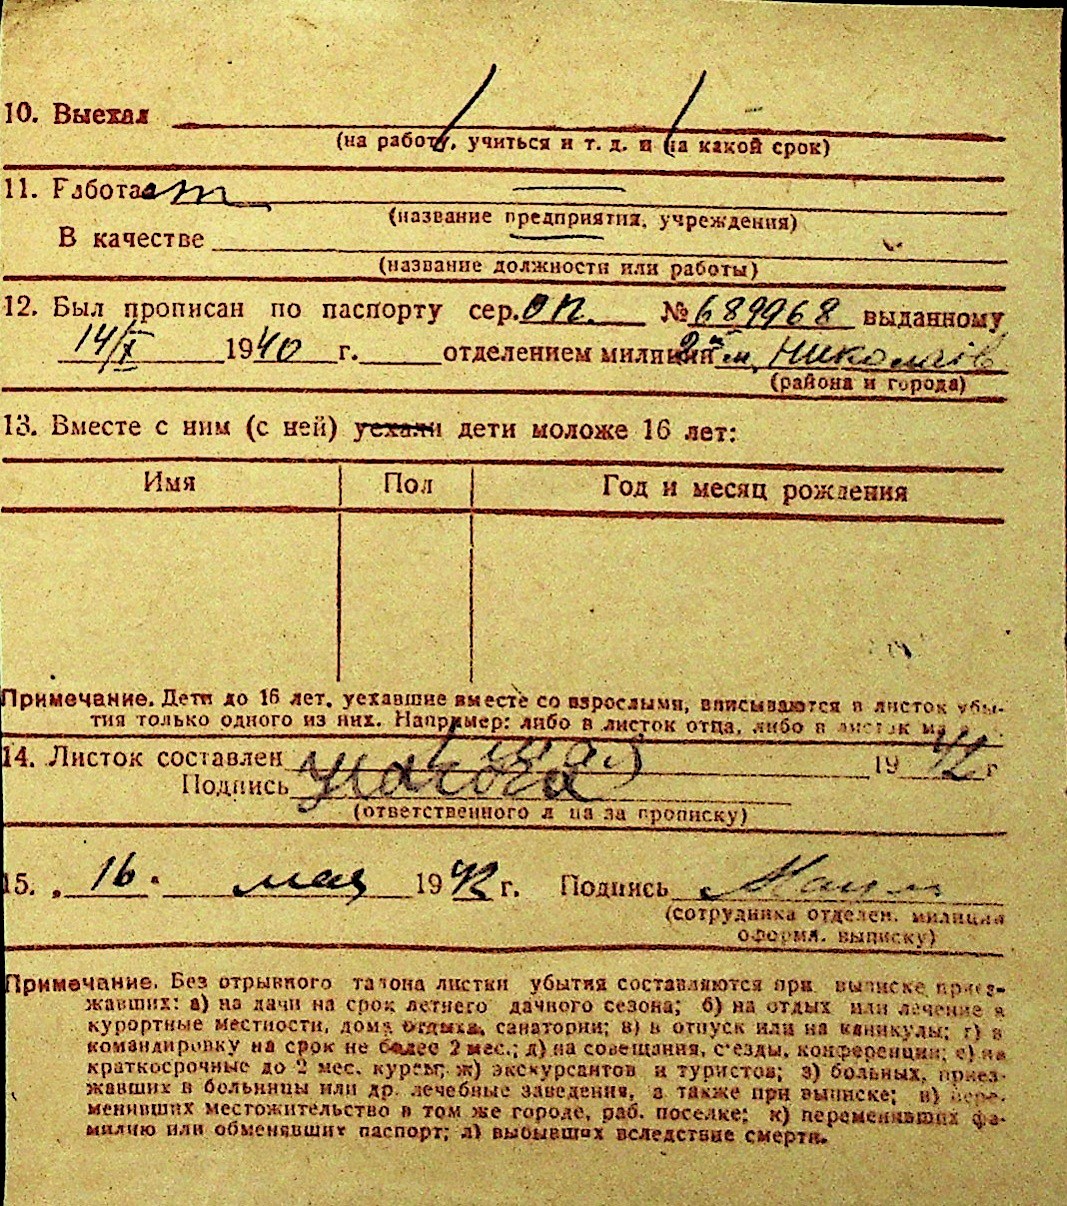 10. Выехал
(на работу, учиться и т. д. и на какой срок)
11. Работает
(название предприятия, учреждения)
В качестве
(название должности или работы)
12. Был прописан по паспорту сер. ОП. № 689968 выданному
14/X 1940 г. отделением милиции 2 м. Николаів
(района и города)
13. Вместе с ним (с ней) уехали дети моложе 16 лет:
Имя Пол Год и месяц рождения
Примечание. Дети до 16 лет, уехавшие вместе со взрослыми, вписываются в листок убы-
тия только одного из них. Например: либо в листок отца, либо в листок ма
14. Листок составлен 1942 г
Подпись
(ответственного лица за прописку)
15. „16" мая 1942 г. Подпись
(сотрудника отделен. милиции
оформл. выписку)
Примечание. Без отрывного талона листки убытия составляются при выписке приез-
жавших: а) на дачи на срок летнего дачного сезона; б) на отдых или лечение в
курортные местности, дома отдыха, санатории; в) в отпуск или на каникулы; г) в
командировку на срок не более 2 мес.; д) на совещания, с'езды, конференции; е) на
краткосрочные до 2 мес. курсы; ж) экскурсантов и туристов; з) больных, приез-
жавших в больницы или др. лечебные заведения, а также при выписке; и) пере-
менивших местожительство в том же городе, раб. поселке; к) переменивших фа-
милию или обменявших паспорт; л) выбывших вследствие смерти.